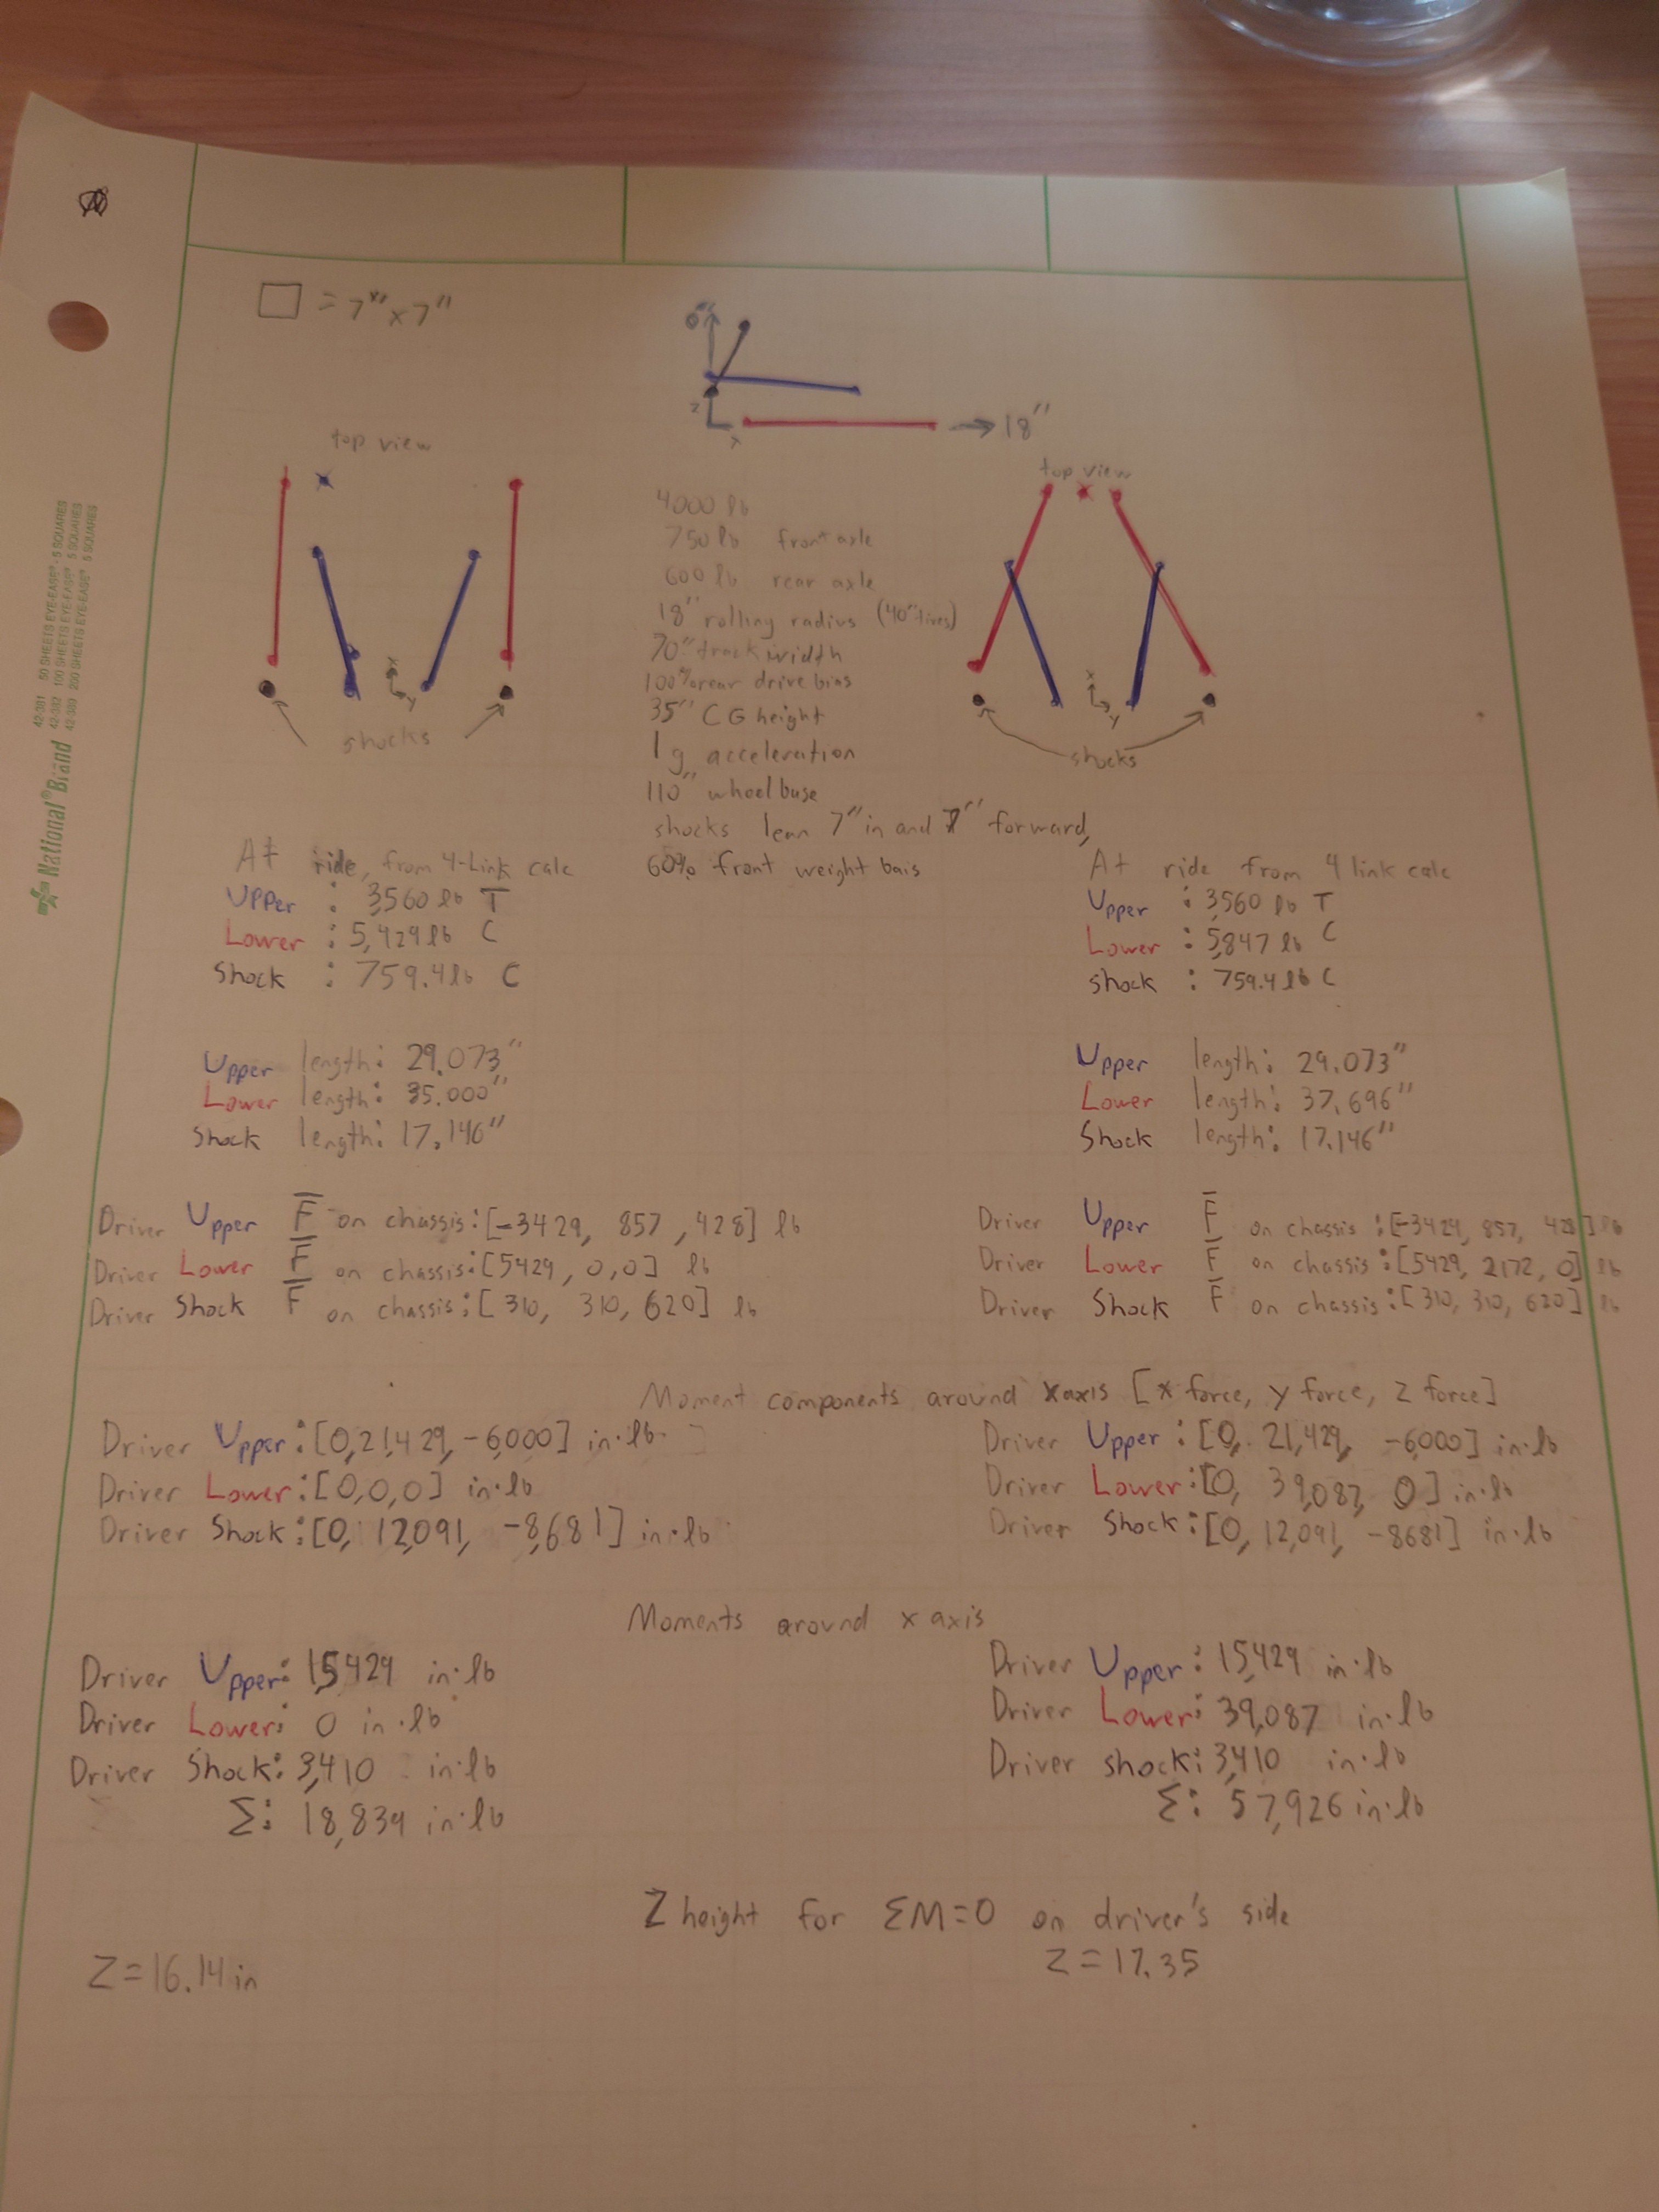 □ = 7" x 7"
0"
z
x
→ 18"
top view
top view
x
y
x
y
shocks
shocks
4000 lb
750 lb front axle
600 lb rear axle
18" rolling radius (40" tires)
70" track width
100% rear drive bias
35" CG height
1 g acceleration
110" wheel base
shocks lean 7" in and 7" forward,
60% front weight bais
At ride, from 4-Link calc
Upper : 3,560 lb T
Lower : 5,429 lb C
Shock : 759.4 lb C
At ride from 4 link calc
Upper : 3,560 lb T
Lower : 5,847 lb C
shock : 759.4 lb C
Upper length: 29.073"
Lower length: 35.000"
Shock length: 17.146"
Upper length: 29.073"
Lower length: 37.696"
Shock length: 17.146"
Driver Upper F on chassis: [-3429, 857, 428] lb
Driver Lower F on chassis: [5429, 0, 0] lb
Driver Shock F on chassis: [310, 310, 620] lb
Driver Upper F on chassis: [-3429, 857, 428] lb
Driver Lower F on chassis: [5429, 2172, 0] lb
Driver Shock F on chassis: [310, 310, 620] lb
Moment components around x axis [x force, y force, z force]
Driver Upper: [0, 21,429, -6,000] in·lb
Driver Lower: [0, 0, 0] in·lb
Driver Shock: [0, 12,091, -8,681] in·lb
Driver Upper: [0, 21,429, -6000] in·lb
Driver Lower: [0, 39,087, 0] in·lb
Driver Shock: [0, 12,091, -8681] in·lb
Moments around x axis
Driver Upper: 15,429 in·lb
Driver Lower: 0 in·lb
Driver Shock: 3,410 in·lb
Σ: 18,839 in·lb
Driver Upper: 15,429 in·lb
Driver Lower: 39,087 in·lb
Driver shock: 3,410 in·lb
Σ: 57,926 in·lb
Z height for ΣM=0 on driver's side
Z = 16.14 in
Z = 17.35
National® Brand
42-381 50 SHEETS EYE-EASE® - 5 SQUARES
42-382 100 SHEETS EYE-EASE® - 5 SQUARES
42-389 200 SHEETS EYE-EASE® - 5 SQUARES